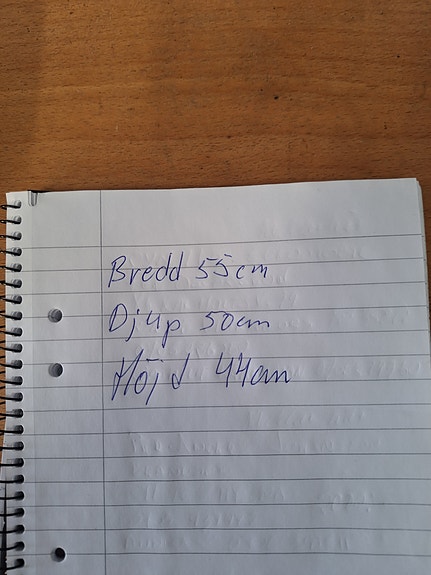 Bredd 55cm
Djup 50cm
Höjd 44cm